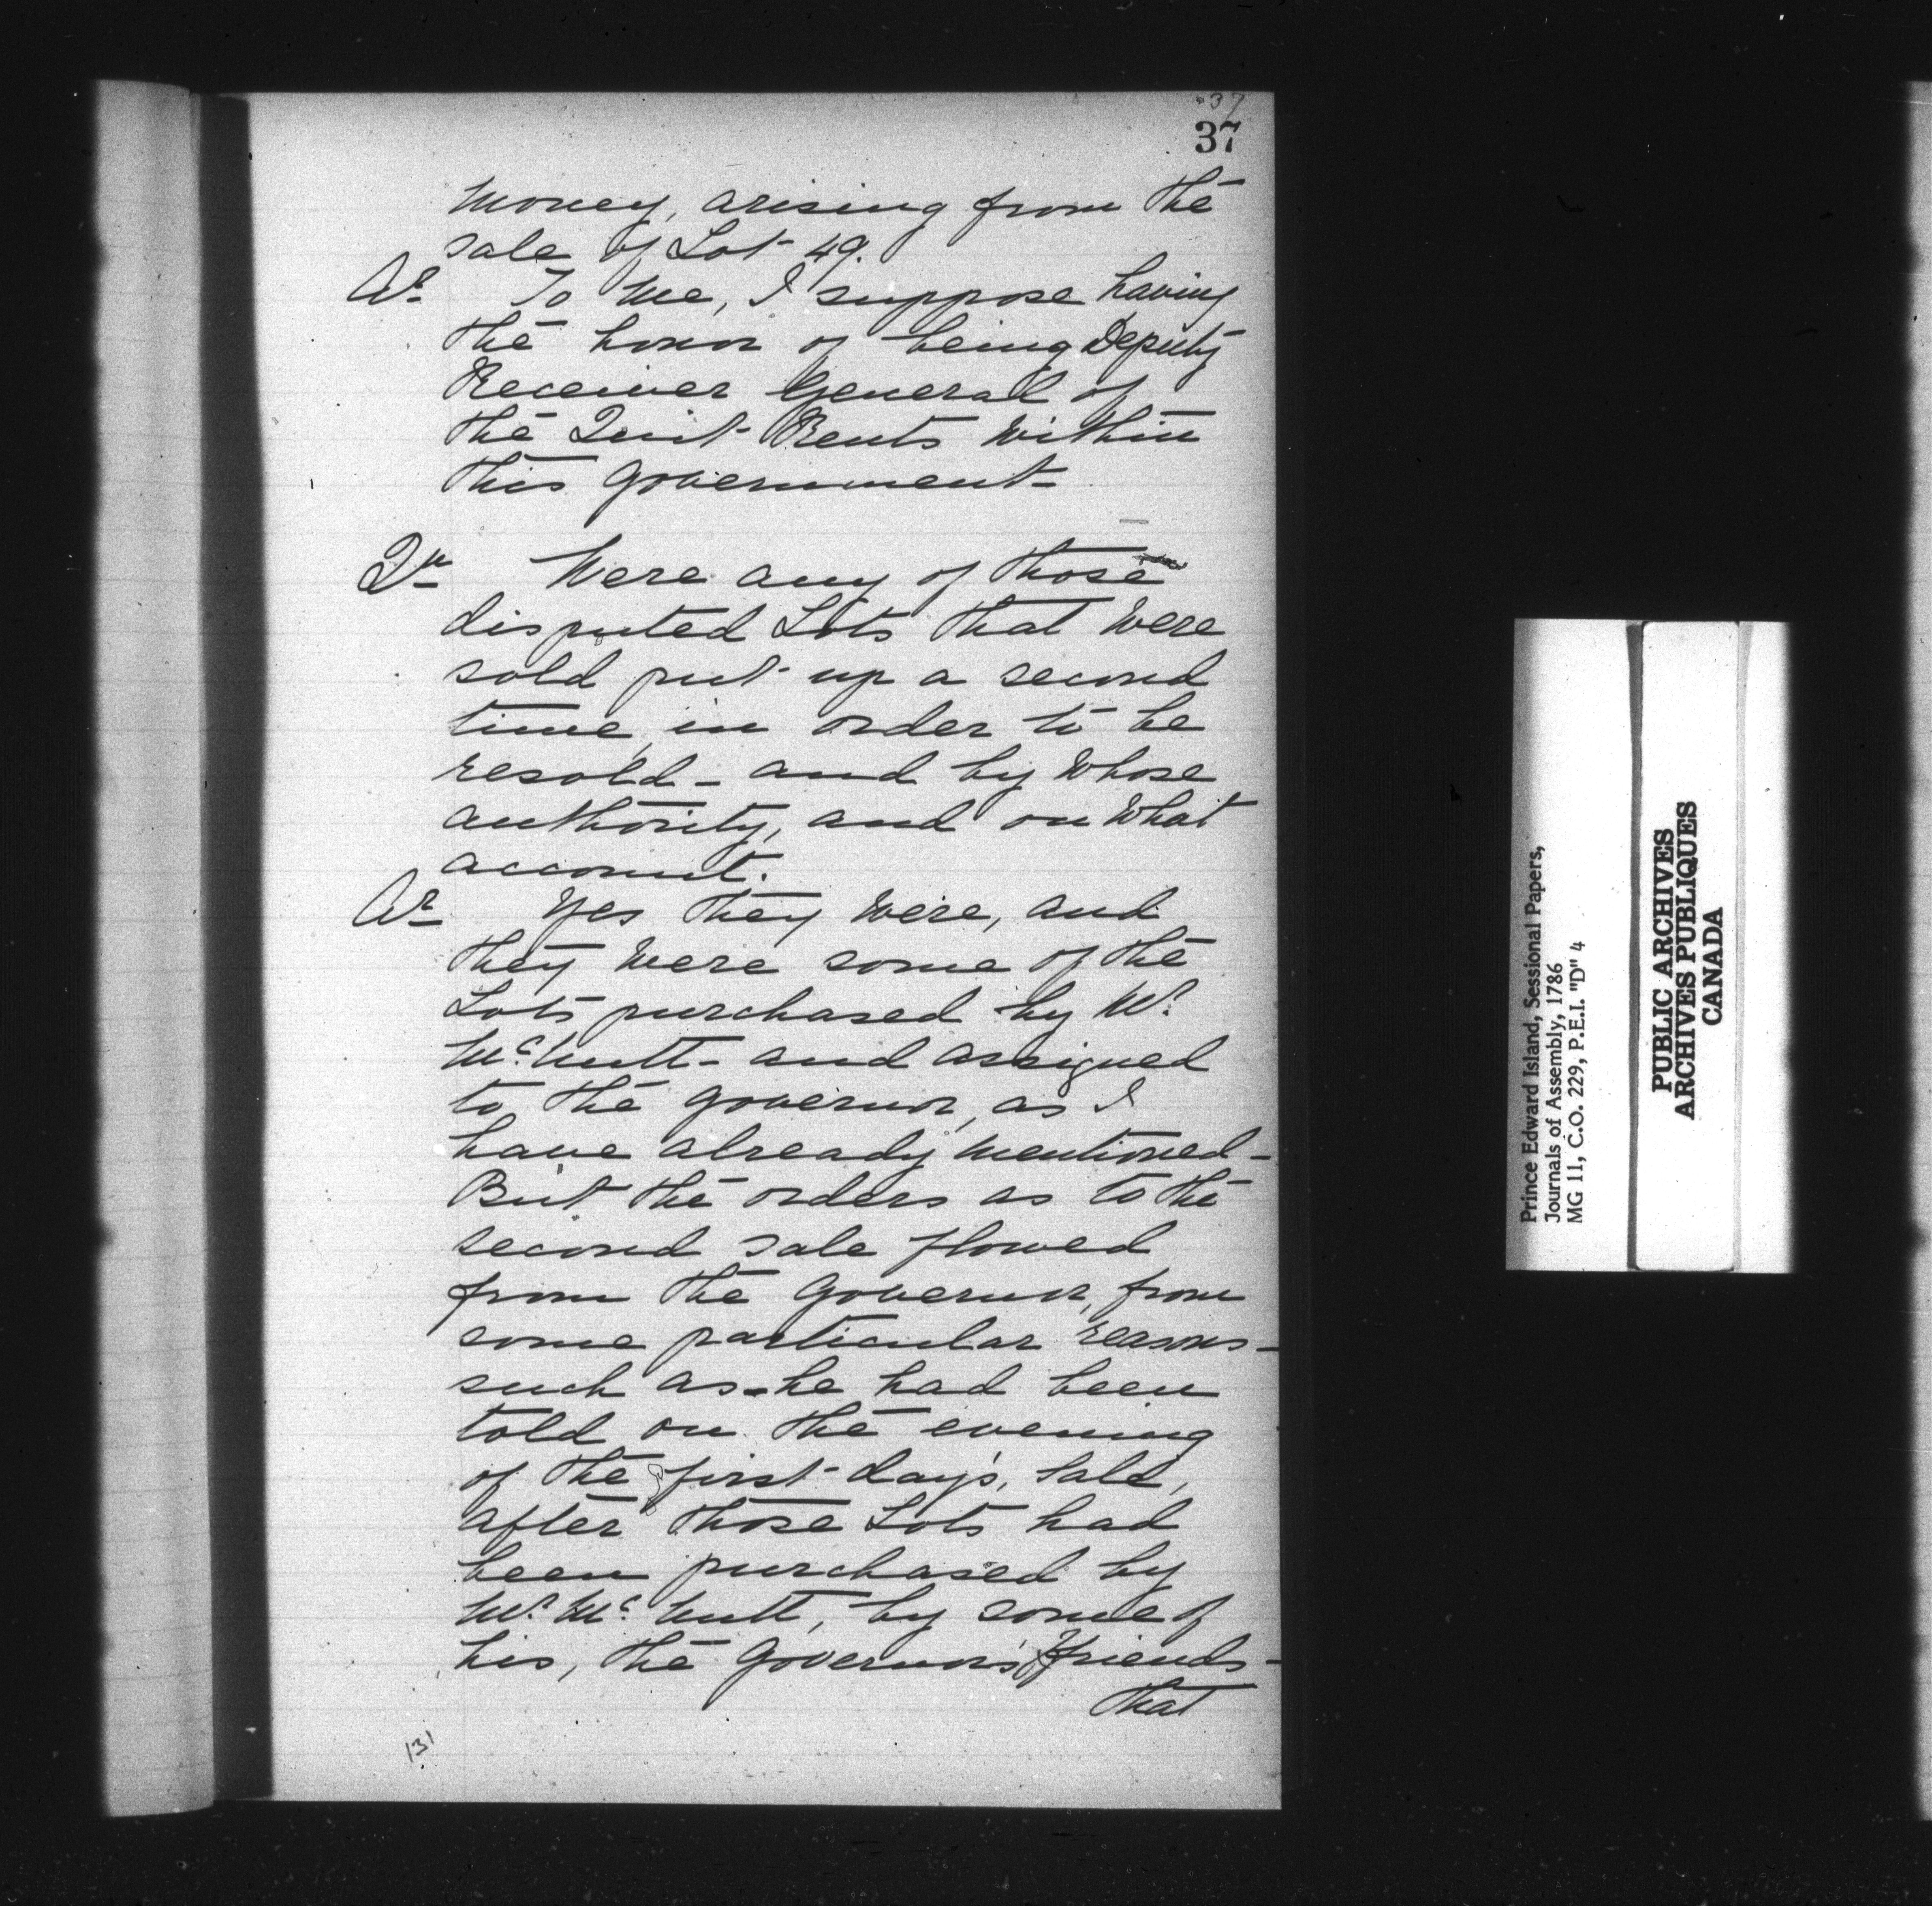 37
37
money, arising from the
sale of Lot 49.
Ar. To me, I suppose having
the honor of being Deputy
Receiver General of
the Quit Rents within
this government-
Qn Were any of those
disputed Lots that were
sold put up a second
time, in order to be
resold - and by whose
authority, and on what
account.
Ar. Yes they were, and
they were some of the
Lots purchased by Mr.
McNutt - and assigned
to the governor, as I
have already mentioned -
But the orders as to the
second sale flowed
from the governor, from
some particular reasons -
such as - he had been
told on the evening
of the first day's, sale,
after those Lots had
been purchased by
Mr. McNutt, by some of
his, the governor's friends -
that
131
Prince Edward Island, Sessional Papers,
Journals of Assembly, 1786
MG 11, C.O. 229, P.E.I. "D" 4
PUBLIC ARCHIVES
ARCHIVES PUBLIQUES
CANADA